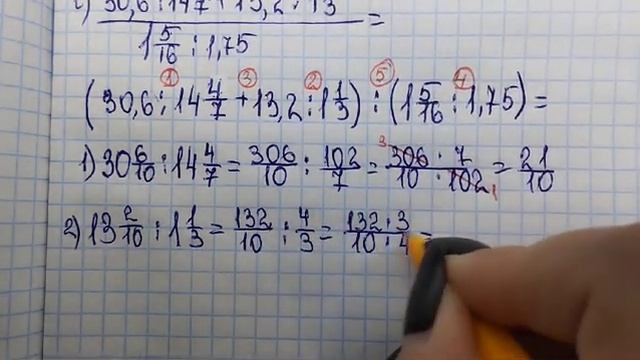 2) 30,6 : 14 4/7 + 13,2 : 1 1/3
1 5/16 : 1,75 =
① ③ ② ⑤ ④
(30,6 : 14 4/7 + 13,2 : 1 1/3) : (1 5/16 : 1,75) =
1) 30 6/10 : 14 4/7 = 306/10 : 102/7 = 306 · 7/10 · 102 = 21/10
3 1
2) 13 2/10 : 1 1/3 = 132/10 : 4/3 = 132 · 3/10 · 4 =